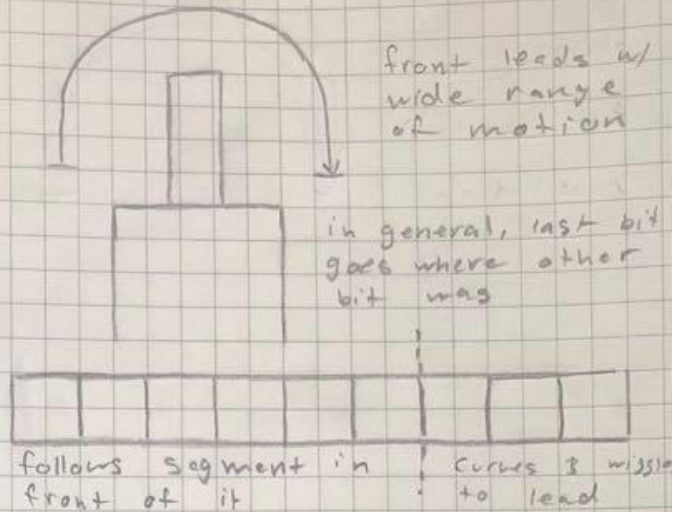 front leads w/
wide range
of motion
in general, last bit
goes where other
bit was
follows segment in
front of it
curves & wiggle
to lead